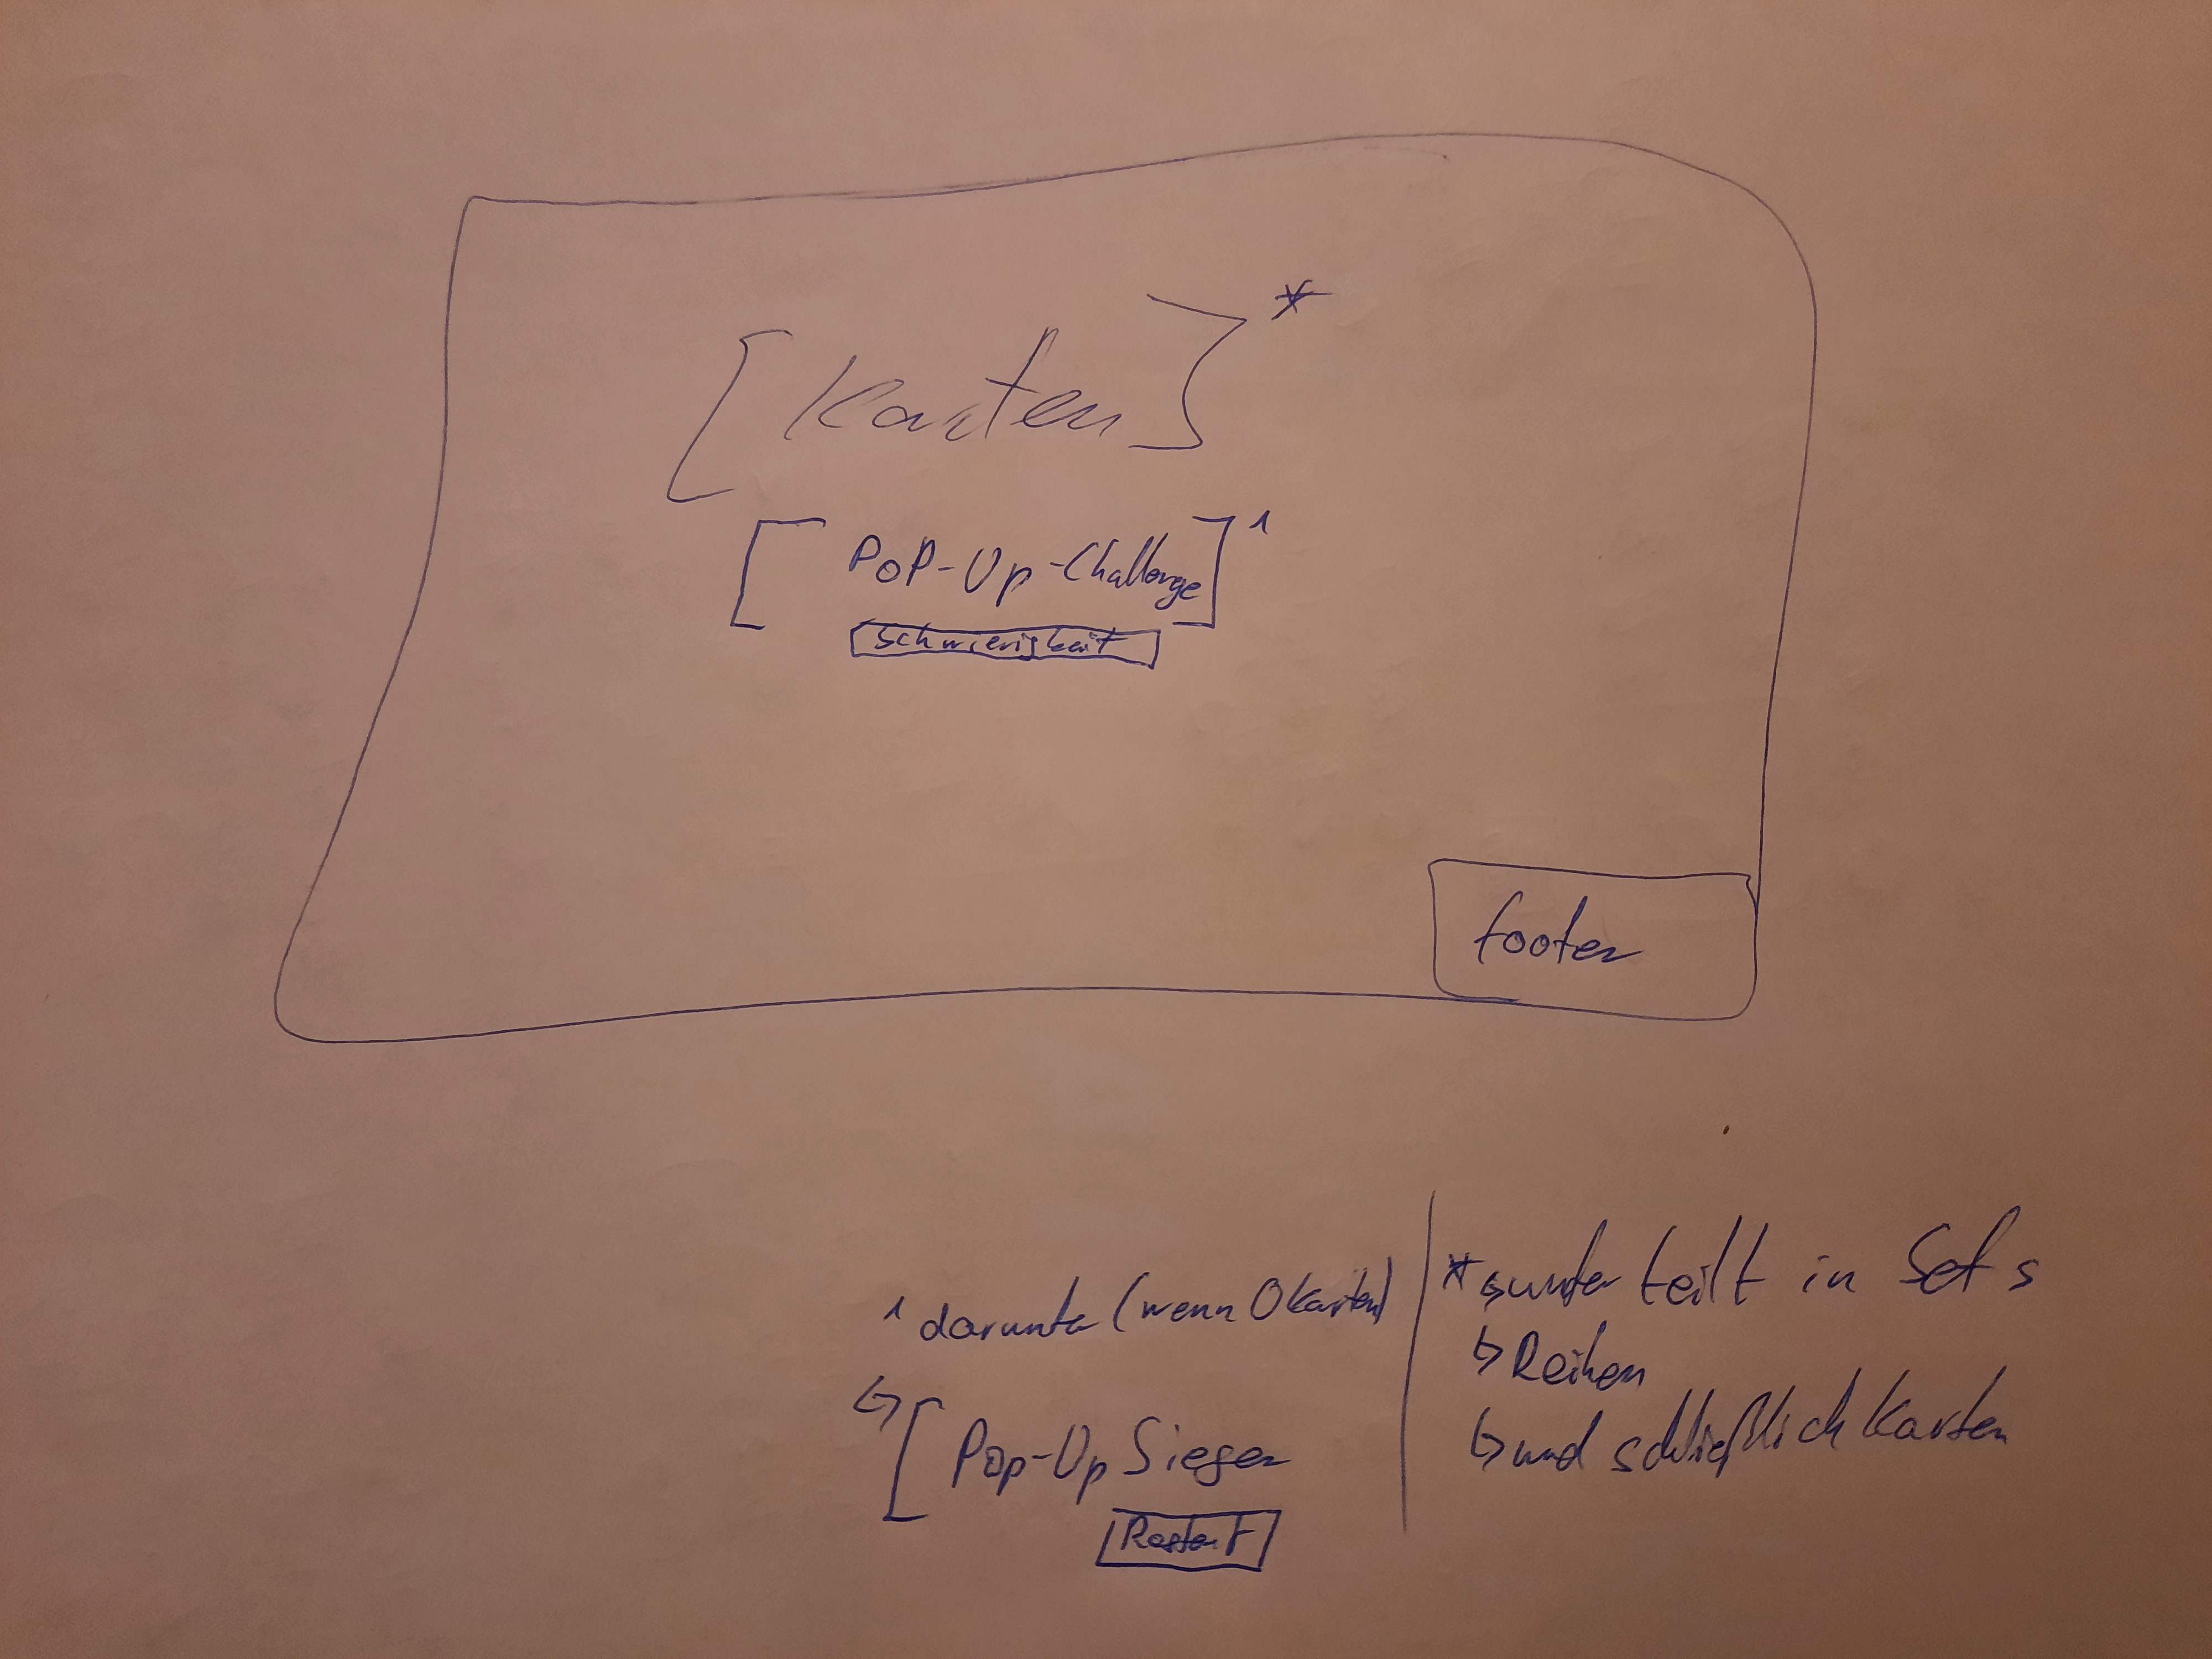 [Karten]*
[POP-Up-Challenge]¹
Schwierigkeit
footer
¹ darunter (wenn 0 Karten)
↳ [Pop-Up Sieger
Restart
* unterteilt in Sets
↳ Reihen
↳ und schließlich Karten